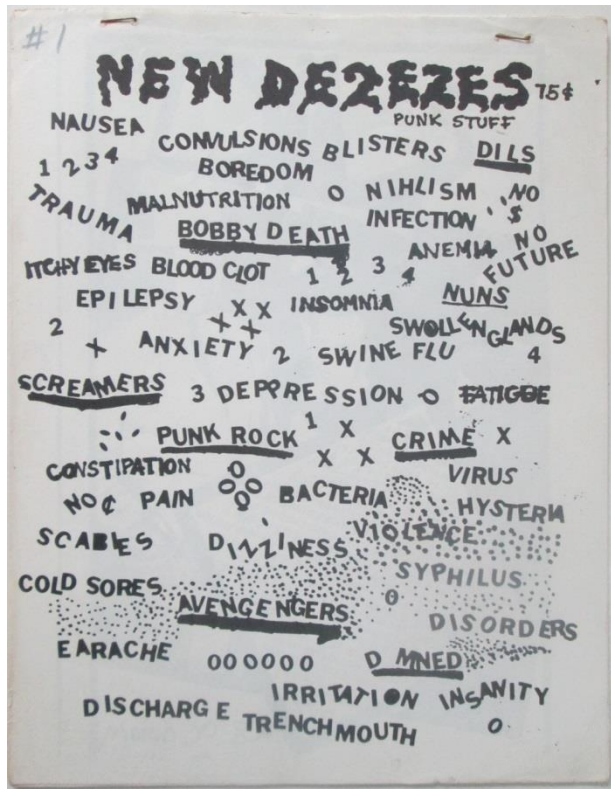 #1
NEW DEZEZES 75¢
PUNK STUFF
NAUSEA CONVULSIONS BLISTERS DILS
1 2 3 4 BOREDOM
TRAUMA MALNUTRITION O NIHLISM NO $
BOBBY DEATH INFECTION
ANEMIA NO FUTURE
ITCHY EYES BLOOD CLOT 1 2 3 4
EPILEPSY X X X X INSOMNIA NUNS
2 X ANXIETY 2 SWINE FLU SWOLLEN GLANDS 4
SCREAMERS 3 DEPPRESSION O FATIGUE
PUNK ROCK 1 X X X CRIME X
CONSTIPATION VIRUS
NO ¢ PAIN O O O O BACTERIA HYSTERIA
SCABIES DIZZINESS VIOLENCE
COLD SORES SYPHILUS
AVENGENGERS O DISORDERS
EARACHE OOOOOO D MNED
IRRITATION INSANITY
DISCHARGE TRENCHMOUTH O